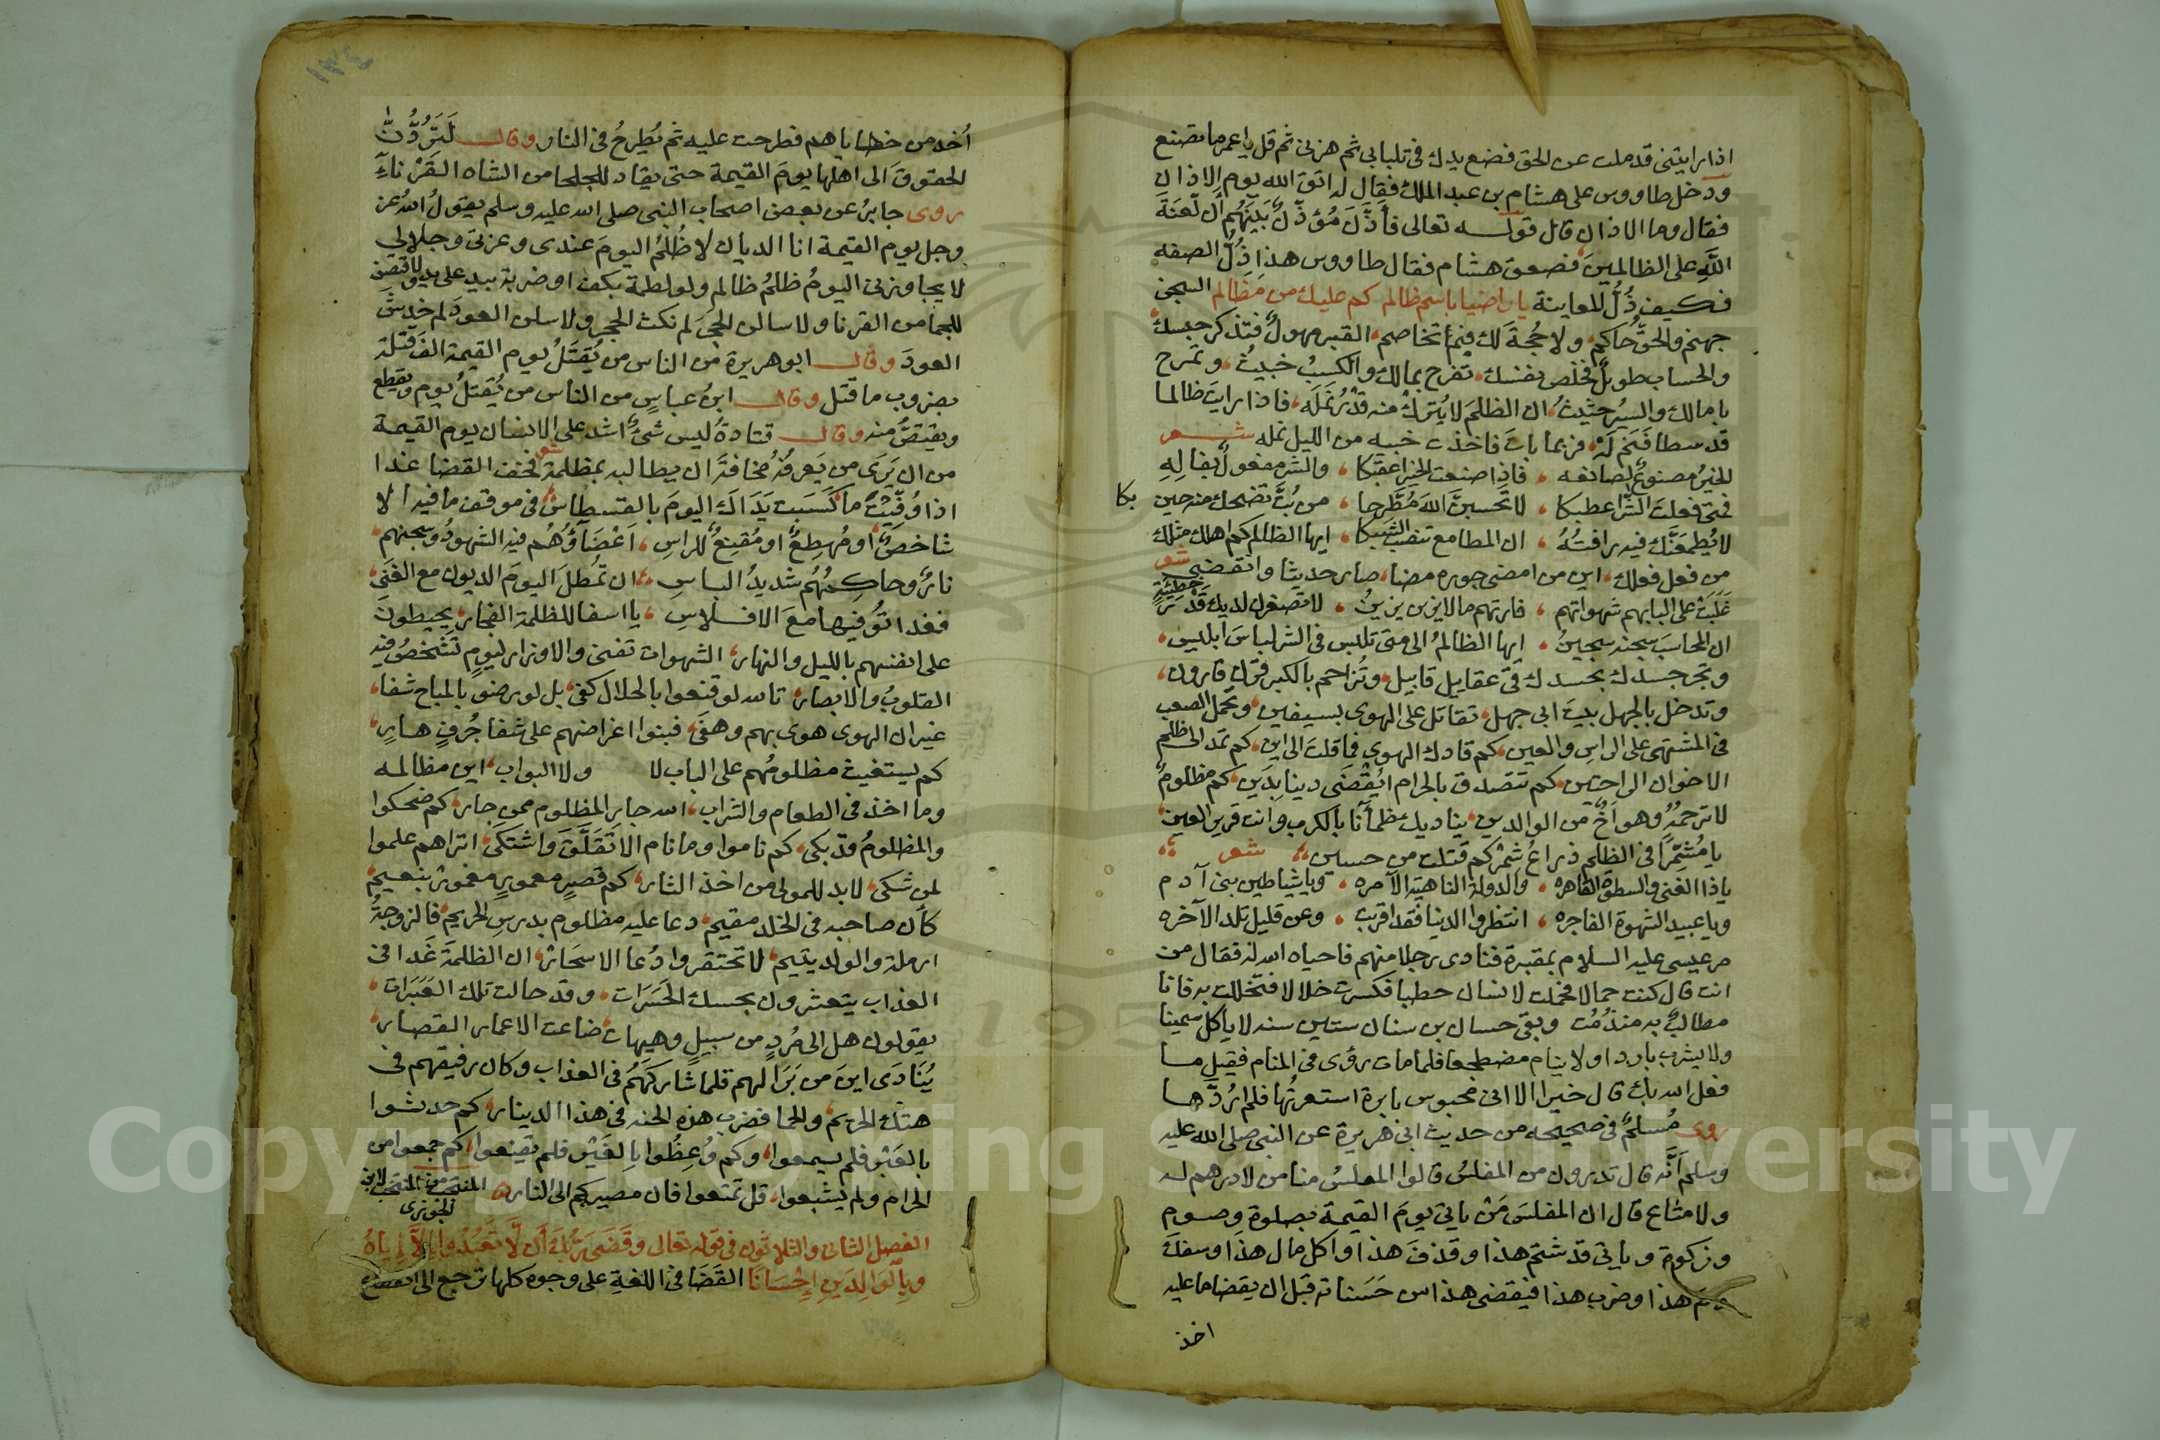 اذا رايتنى قد ملت عن الحق فضع يدك فى تلبابى ثم هزنى ثم قل يا عمر ما تصنع
ودخل طاووس على هشام بن عبد الملك فقال له اتق الله يوم الاذان
فقال وما الاذان قال قوله تعالى فَأَذَّنَ مُؤَذِّنٌ بَيْنَهُم أن لَّعْنَةُ
اللَّهِ على الظالمين فصعق هشام فقال طاووس هذا ذُلُّ الصفه
فكيف ذُلُّ المعاينة يا راضيا باسم ظالم كم عليك من مظالم السجن
جهنم والحقُّ حاكم ولا حُجةَ لك فيمَ تخاصم القبر مهولٌ فتذكر حبسك
والحساب طويلٌ فخلص نفسك تفرح بمالك والكسبُ خبيثٌ وتمرح
بامالك والسيُر حثيثٌ ان الظلمَ لا يُترك منه قَدْرُ نَملَه فاذا رايتَ ظالما
قد سطا فنَم لَهُ فربما باتَ فاخذت جنبه من الليل نمله شعر
فتى فعلتَ الشَّرّ اعطبكا لا تحسبنَّ اللهَ مُطَّرحا من بُتَّ تضحك منه حين بكا
لا يُطمعَنَّك فيه رافتُهُ ان المطامع تنصب الشبكا ايها الظالم كم اهلك مثلك
من فعل فعلك اين من امضى جوره مضا صار حديثا وانقضى شعر
غَلَبَتْ على البابهم شهواتهم فارتهم ما لا يزين يزينُ لا تصغرن لديك قَدْرَ خطيئةٍ
ان المحاسَبَ بجند سجينُ ايها الظالمُ الى متى تلبس فى الشر لباسَ ابليس
وتجر جسدك بحسدك فى عقابيل قابيل وتُزاحم بالكبر قرن قارون
وتدخل بالجهل بيتَ ابى جهل تقاتل على الهوى بسيفين وتحمل الصعب
فى المشتهى على الراس والعين كم قادك الهوى فما قلت الى اين كم تمد الى ظلم
الاخوان الراحتين كم تتصدق بالحرام ايُقْضَى دينا بِدَين كم مظلومٌ
لا ترحمُهُ وهو اخٌ من الوالدين يناديك ظمآنا بالكرب وانت قرير العين
يا مُشمِّرًا فى الظلم ذراعَ شِمْر كم قتلت من حسين شعر
ياذا الغنى والسطوة القاهره والدولة الناهية الآمره ويا شياطين بنى آدم
ويا عبيد الشهوة الفاجره انتظروا الدنيا فقد اقربت وعن قليل تلد الآخره
مر عيسى عليه السلام بمقبرة فنادى رجلا منهم فاحياه الله له فقال من
انت قال كنت حمالا فحملت لانسان حطبا فكسرت خلالا فتخللت به فانا
مطالبٌ به منذ مُتّ وبقى حسان بن سنان ستين سنه لا ياكل سمينا
ولا يشرب باردا ولا ينام مضطجعا فلما مات رؤى فى المنام فقيل ما
فعل الله بك قال خيرا الا انى محبوس بابرة استعرتُها فلم اردَّها
روى مُسلمٌ فى صحيحه من حديث ابى هريرة عن النبى صلى الله عليه
وسلم اَنَّه قال تدرون من المفلسُ قالوا المفلسُ منا من لا درهم له
ولا متاع قال ان المفلسَ مَنْ ياتى يومَ القيمة بصلوة وصوم
وزكوة وياتى قد شتم هذا وقذفَ هذا واكل مال هذا وسفك
دم هذا وضرب هذا فيقضى هذا من حَسَناته قبل ان يقضا ما عليه
اخذ
اُخذ من خطاياهم فطرحت عليه ثم يُطرحُ فى النار وقال لَتَرُدُّنّ
الحقوقَ الى اهلها يومَ القيمة حتى يقاد للجلحا من الشاه القَرْناءِ
روى جابرُ عن بعض اصحاب النبى صلى الله عليه وسلم يقولُ اللهُ عز
وجل يوم القيمة انا الديان لا ظُلمُ اليومَ عندى وعزتى وجلالي
لا يجاوزنى اليومُ ظلمُ ظالم ولو لطمة بكف او ضربة بيد على يد ولاقتصن
للجما من القرنا ولاسالن الحجَرَ لم نكث الحجر ولاسلن العودَ لم خدش
العودَ وقال ابو هريرة من الناس من يُقتَلُ يوم القيمة الف قتلة
بضروب ما قتل وقال ابنُ عباسٍ من الناس من يُقتلُ يوم ويقطع
ويقتصُّ منه وقال قتادةُ ليس شئٌ اشد على الانسان يوم القيمة
من ان يَرَى من يَعرفُهُ مخافةَ ان يطالبه بمظلمة فخف القضا غدا
اذا وُفِّيْتَ ما كَسَبَت يَدَاكَ اليومَ بالقسطاسِ فى موقف ما فيه الا
شاخصٌ او مُهطِعٌ او مُقنِعٌ للراسِ اَعْضَاؤُهُم فيه الشهودُ وسجنهم
نارٌ وحاكمُهُم شديدُ الباسِ ان تمطُلَ اليومَ الديون مع الغنَى
فغدا توُفيها معَ الافلاسِ يا اسفا للظلمة الفجار يحيطونَ
على انفسهم بالليل والنهار الشهوات تفنى والاوزار ليومٍ تَشْخَصُ فيه
القلوبُ والابصار تالله لو قنعوا بالحلال كفى بل لو رضوا بالمباح شفا
غير ان الهوى هوى بهم وهفَى فبنوا اغراضهم على شفا جُرُفٍ هارٍ
كم يستغيث مظلومُهم على الباب لا ولا البواب اين مظالمه
وما اخذ فى الطعام والشراب الله جار المظلوم ممن جار كم ضحكوا
والمظلومُ قد بكى كم ناموا وما نام الا تقلَّقَ واشتكى اتراهم علموا
لمن شكى لا بد للمولى من اخذ الثار كم قصيرٍ معمورٍ مغمورٌ بنعيم
كأن صاحبه فى الخلد مقيم دعا عليه مظلوم بدرس الحريم فالزوجةُ
ارملة والولد يتيم لا تحتقروا دُعا الاسحَار ان الظلمةَ غَدا فى
العذاب يتعثرون بحسك الحَسَرَات وقد حالت تلك العَبَرَات
يقولون هل الى مُردٍ من سبيلٍ وهيهات ضاعت الاعمار القصار
يُنَادَى اينَ من بَرَا لهم قلما شاركَهُم فى العذاب وكان رفيقهم فى
هتك الحريم والحجا فضرب هذه الجند فى هذا الدينار كم حدثوا
بالعَبَر فلم يسمعوا وكم وُعِظُوا بالغَيْر فلم يقنعوا كم جمعوا من
الحرام ولم يشبعوا قل تمتعوا فان مصيركم الى النار المنتخب من المنتخب لابن الجوزى
الفصل الثانى والثلاثون فى قوله تعالى وَقَضَى رَبُّكَ أَن لَّا تَعْبُدُوا إِلَّا إِيَّاهُ
وَبِالْوَالِدَينِ إِحْسَانًا القَضَا فى اللغةِ على وجوه كلها ترجع الى انقطاع
Copyright © King Saud University